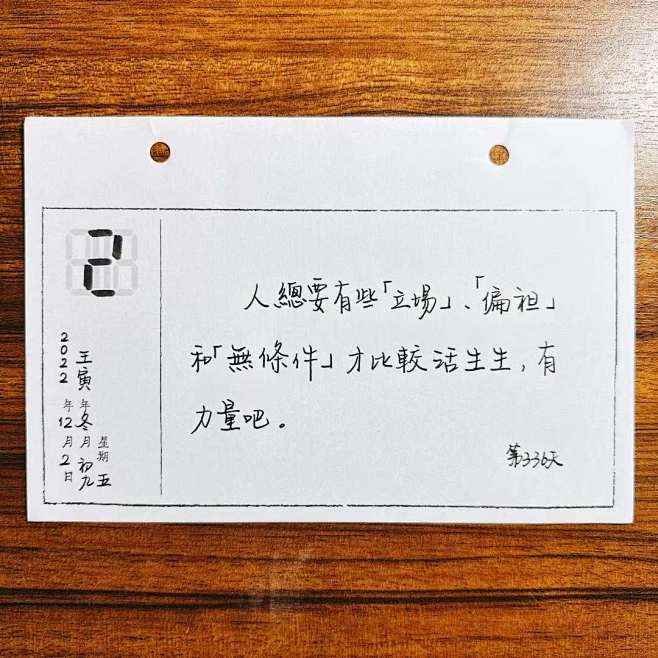 2
2022年12月2日
壬寅年冬月初九
星期五
人總要有些「立場」、「偏袒」
和「無條件」才比較活生生，有
力量吧。
第336天